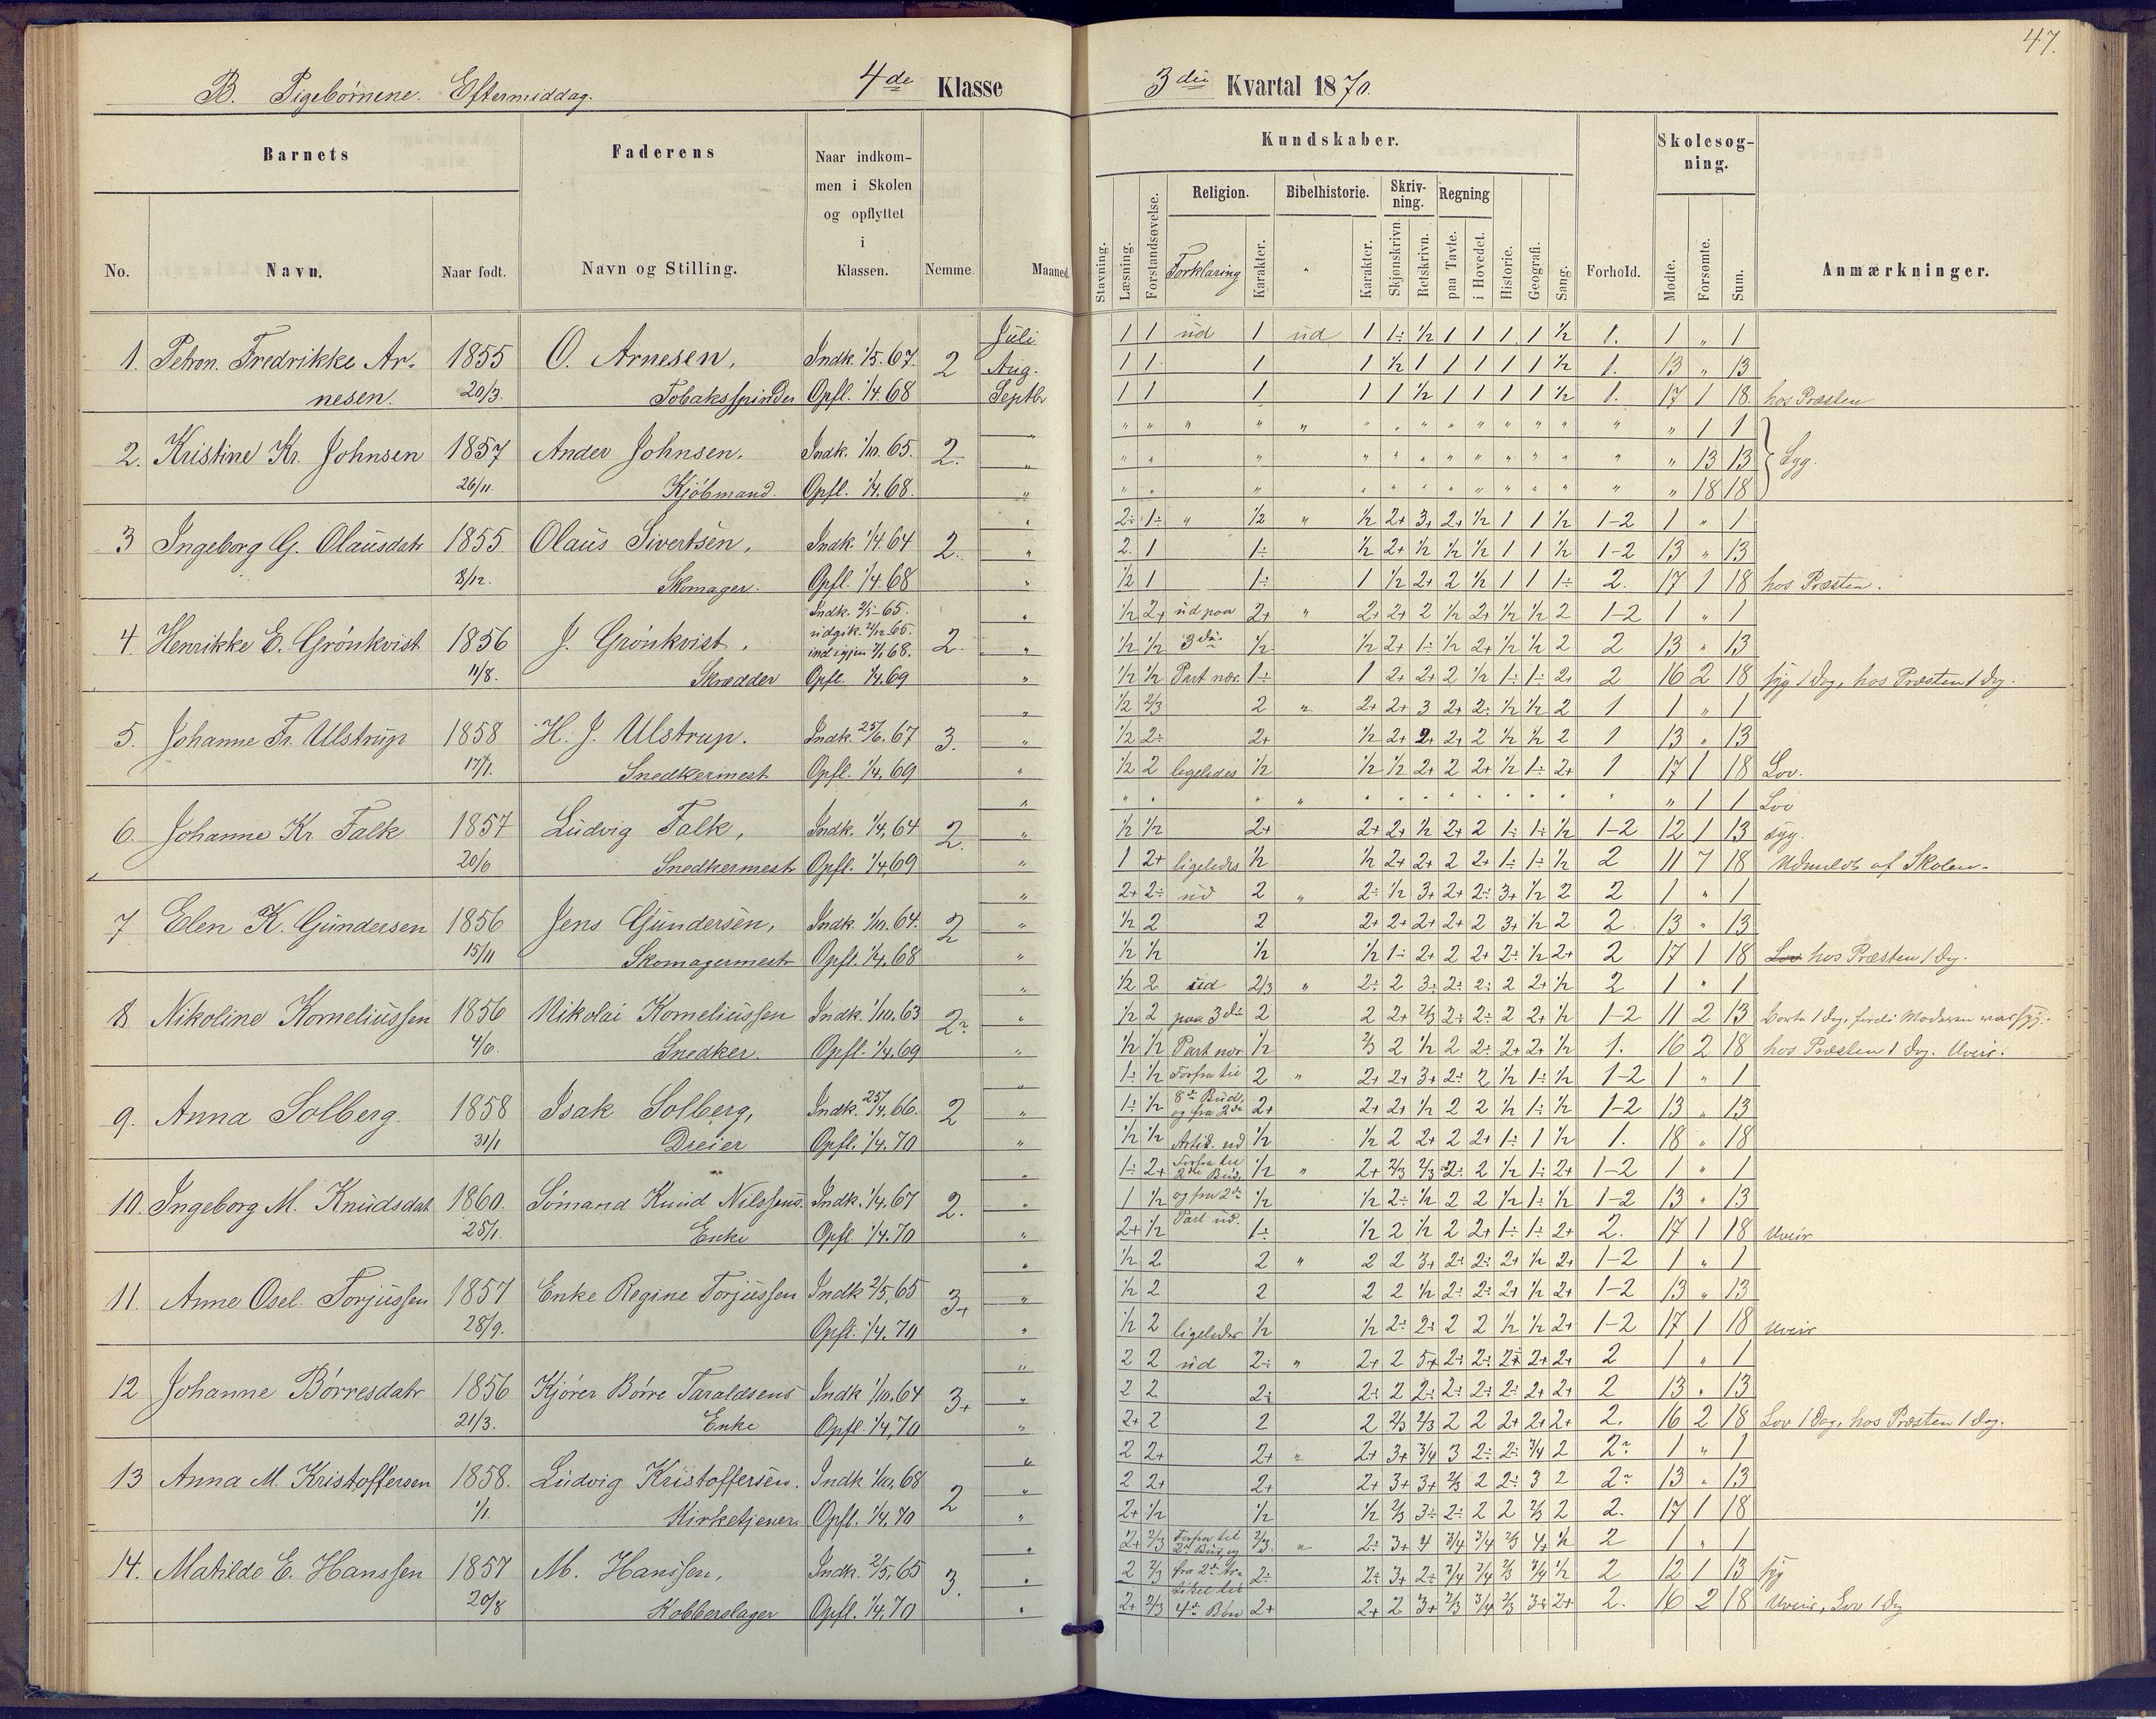 47.
B. Pigebørnene. Eftermiddag. 4de Klasse
3die Kvartal 1870.
Barnets
Faderens
Naar indkommen i Skolen og opflyttet i Klassen.
Nemme.
Maaned.
No.
Navn.
Naar født.
Navn og Stilling.
Kundskaber.
Stavning.
Læsning.
Forstandsøvelse.
Religion.
Forklaring
Karakter.
Bibelhistorie.
Karakter.
Skrivning.
Skjønskrivn.
Retskrivn.
Regning
paa Tavle.
i Hovedet.
Historie.
Geografi.
Sang.
Forhold.
Skolesøgning.
Mødte.
Forsømte.
Sum.
Anmærkninger.
Juli 1 1 ud 1 ud 1 1÷ 1/2 1 1 1 1 1/2 1. 1 " 1
1. Petron. Fredrikke Ar- 1855 O. Arnesen, Indk. 1/5.67. 2 Aug. 1 1 1 1 1/2 1 1 1 1 1 1/2 1. 13 " 13
nesen. 20/3. Tobaksspinder Opfl. 1/4.68 Septbr 1 1 1 1 1 1/2 1 1 1 1 1/2 1. 17 1 18. hos Præsten
" " " " " " " " " " " " " " " 1 1
2. Kristine Kr. Johnsen 1857 Ander Johnsen, Indk. 1/10.65. 2. " 13 13 Syg.
26/11. Kjøbmand. Opfl. 1/4.68. " 18 18
2÷ 1÷ " 1/2 " 1/2 2+ 3+ 2+ 1/2 1 1 1/2 1-2 1 " 1
3 Ingeborg G. Olausdatr 1855 Olaus Sivertsen, Indk. 1/4.64 2. " 2. 1 1÷ 1/2 2+ 1/2 1/2 1/2 1 1 1/2 1-2 13 " 13
8/12. Skomager. Opfl. 1/4.68 " 1/2 1 1÷ 1 1/2 2+ 2 1/2 1 1 1÷ 2. 17 1 18 hos Præsten.
Indk. 2/5-65. " 1/2 2+ ud paa 2+ " 2+ 2+ 2 1/2 2+ 1/2 1/2 2 1-2 1 " 1
4. Henrikke E. Grönkvist 1856 J. Grönkvist, udgik. 21/12 65. ind igjen 7/1 68. 2. " 1/2 1/2 3die 1/2 1/2 2+ 1÷ 1/2 2+ 1/2 1/2 2 2 13 " 13
11/8. Skrædder Opfl. 1/4.69 " 1/2 1/2 Part nær. 1÷ 1 2+ 2+ 2 1/2 1÷ 1÷ 2. 2 16 2 18 syg 1 Dag, hos Præsten 1 Dag.
" 1/2 2/3 2 " 2+ 2+ 3 2+ 2÷ 1/2 1/2 2 1 1 " 1
5. Johanne Fr. Ulstrup 1858 H. J. Ulstrup. Indk. 25/6.67 3. " 1/2 2÷ 2+ 1/2 2+ 2+ 2+ 2 1/2 1/2 2 1 13 " 13
17/1. Snedkermest Opfl. 1/4.69 " 1/2 2 ligeledes 1/2 1/2 1/2 2+ 2 2+ 1/2 1÷ 2+ 1 17 1 18 Lov.
" " " " " " 1 1 Lov
6. Johanne Kr. Falk 1857 Ludvig Falk, Indk. 1/4.64 2. " 1/2 1/2 2+ 2+ 2+ 1/2 2+ 2 1÷ 1÷ 1/2 1-2 12 1 13 syg.
20/6 Snedkermestr Opfl. 1/4.69 " 1 2+ ligeledes 1/2 1/2 2+ 2+ 2 2+ 1÷ 1÷ 1/2 2 11 7 18 Udmeldt af Skolen.
" 2+ 2÷ ud 2 " 2÷ 1/2 3+ 2+ 2÷ 3+ 1/2 2 2 1 " 1
7 Elen K. Gundersen 1856 Jens Gundersen, Indk. 1/10.64. 2 " 1/2 2 2 2+ 2+ 2+ 2+ 2 3+ 1/2 2 2. 13 " 13
15/11 Skomagermestr Opfl. 1/4.68 " 1/2 1/2 1/2 1/2 1÷ 2+ 2 2+ 2÷ 1/2 2+ 2 17 1 18 Lov hos Præsten 1 Dag.
" 1/2 2 ud 2/3 " 2÷ 2 3÷ 2÷ 2÷ 2 2+ 1/2 2 1 " 1
8 Nikoline Korneliussen 1856 Nikolai Korneliussen Indk. 1/10.63 2÷ " 1/2 2 paa 3die 2 2 2+ 2/3 2÷ 2÷ 2 2+ 1/2 1-2 11 2 13 borte 1 Dag, fordi Moderen var syg.
4/6. Snedker. Opfl. 1/4.69 " 1/2 1/2 Part nær 1/2 2/3 2 1/2 2 2÷ 2+ 2+ 1/2 1. 16 2 18 hos Præsten 1 Dag. Uveir.
" 1÷ 1/2 Forfra til 2 " 2+ 2+ 3+ 2÷ 2 1/2 1÷ 1/2 1-2 1 " 1
9. Anna Solberg. 1858 Isak Solberg, Indk. 25/4.66. 2 " 1÷ 1/2 8de Bud, og fra 2den 2+ 2+ 2+ 1/2 2 2 1/2 1÷ 1/2 1-2 13 " 13
31/1 Dreier Opfl. 1/4.70 " 1/2 1/2 Artik. ud 1/2 1/2 2 2+ 2 2+ 1÷ 1 1/2 1. 18 " 18
" 1÷ 2+ Forfra til 2det Bud, 1/2 " 2+ 2/3 2/3 2÷ 2 1/2 1÷ 2+ 1-2 1 " 1
10. Ingeborg M. Knudsdat 1860. Sömand Knud Nilssens. Indk. 1/4.67 2. " 1 1/2 og fra 2den 1/2 1/2 2÷ 1/2 2 2 1/2 1÷ 1/2 1-2 13 " 13
25/1. Enke Opfl 1/4.70 " 2+ 1/2 Part ud. 1÷ 1/2 2 1/2 2 2+ 1÷ 1÷ 2+ 2. 17 1 18 Uveir
" 1/2 2 2 " 2 2 3+ 2÷ 2÷ 2+ 1/2 2+ 1-2 1 " 1
11. Anne Osel. Torjussen 1857 Enke Regine Torjussen Indk 2/5.65 3+ " 1/2 2 2 2 2 1/2 2÷ 2÷ 2+ 1/2 2+ 1-2 13 " 13
28/9. Opfl. 1/4.70 " 1/2 2 ligeledes 1/2 1/2 2÷ 2÷ 2 2 1/2 1/2 2+ 1-2 17 1 18 Uveir
" 2 2 ud 2÷ " 2+ 2 5+ 2÷ 2÷ 2+ 2+ 2+ 2 1 " 1
12 Johanne Börresdatr 1856 Kjörer Börre Taraldsens Indk 1/10.64 3+ " 2 2 2÷ 2÷ 2 2÷ 2÷ 2÷ 2÷ 2+ 2+ 2 13 " 13
21/3. Enke Opfl. 1/4.70 " 2+ 2 2 2 2/3 2/3 2 2 2+ 2+ 2+ 2. 16 2 18 Lov 1 Dag, hos Præsten 1 Dag.
" 2 2+ 2+ " 2+ 3+ 3/4 3 2÷ 2÷ 3/4 2 2÷ 1 " 1
13 Anna M. Kristoffersen 1858. Ludvig Kristoffersen. Indk 1/10.68 2 " 2 2+ 2+ 2+ 3+ 3+ 2/3 2 2÷ 3 2 2÷ 13 " 13
1/1. Kirketjener. Opfl. 1/4.70 " 2+ 1/2 1/2 1/2 2/3 3÷ 2÷ 2 2 2/3 2 2. 17 1 18
" 2+ 2/3 Forfra til 2det Bud, og 2/3 " 2÷ 3+ 4 3/4 3/4 2/3 4+ 1/2 2 1 " 1
14. Matilde E. Hanssen 1857 M. Hanssen, Indk. 2/5.65 3. " 2 2/3 fra 2den Artikel til 2÷ 2÷ 3+ 2÷ 3/4 3/4 2/3 3/4 1/2 2 12 1 13 syg
20/8 Kobberslager Opfl. 1/4.70 " 2+ 2/3 4de Bøn 2+ 2+ 2 3+ 2/3 3/4 2/3 3+ 2+ 2. 16 2 18 Uveir, Lov 1 Dag